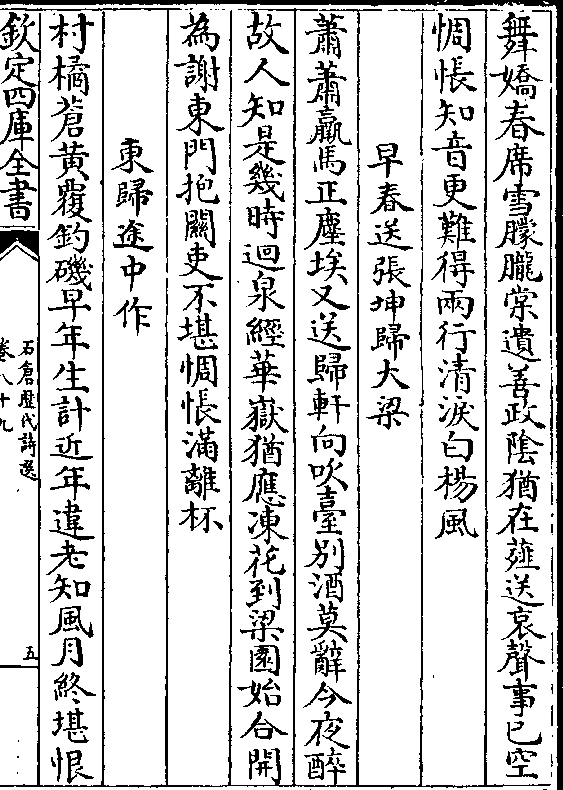 舞嬌春席雪朦朧棠遺善政陰猶在薤送哀聲事已空
惆悵知音更難得兩行清淚白楊風
早春送張坤歸大梁
蕭蕭羸馬正塵埃又送歸軒向吹臺別酒莫辭今夜醉
故人知是幾時迴泉經華嶽猶應凍花到梁園始合開
為謝東門抱關吏不堪惆悵滿離杯
東歸途中作
村橘蒼黃覆釣磯早年生計近年違老知風月終堪恨
欽定四庫全書
石倉歷代詩選
卷八十九
五